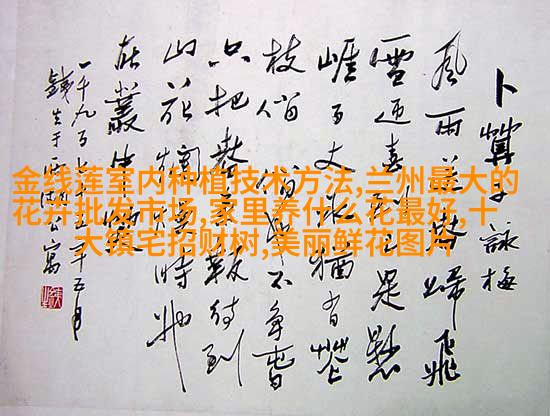 金线莲室内种植技术方法,兰州最大的
花卉批发市场,家里养什么花最好,十
大镇宅招财树,美丽鲜花图片
卜算子詠梅
風雨送春歸飛
雪迎春到已是懸
崖百丈冰猶有花
枝俏俏也不爭春
只把春來報待到
山花爛漫時她
在叢中笑
一千九百七十五年五月